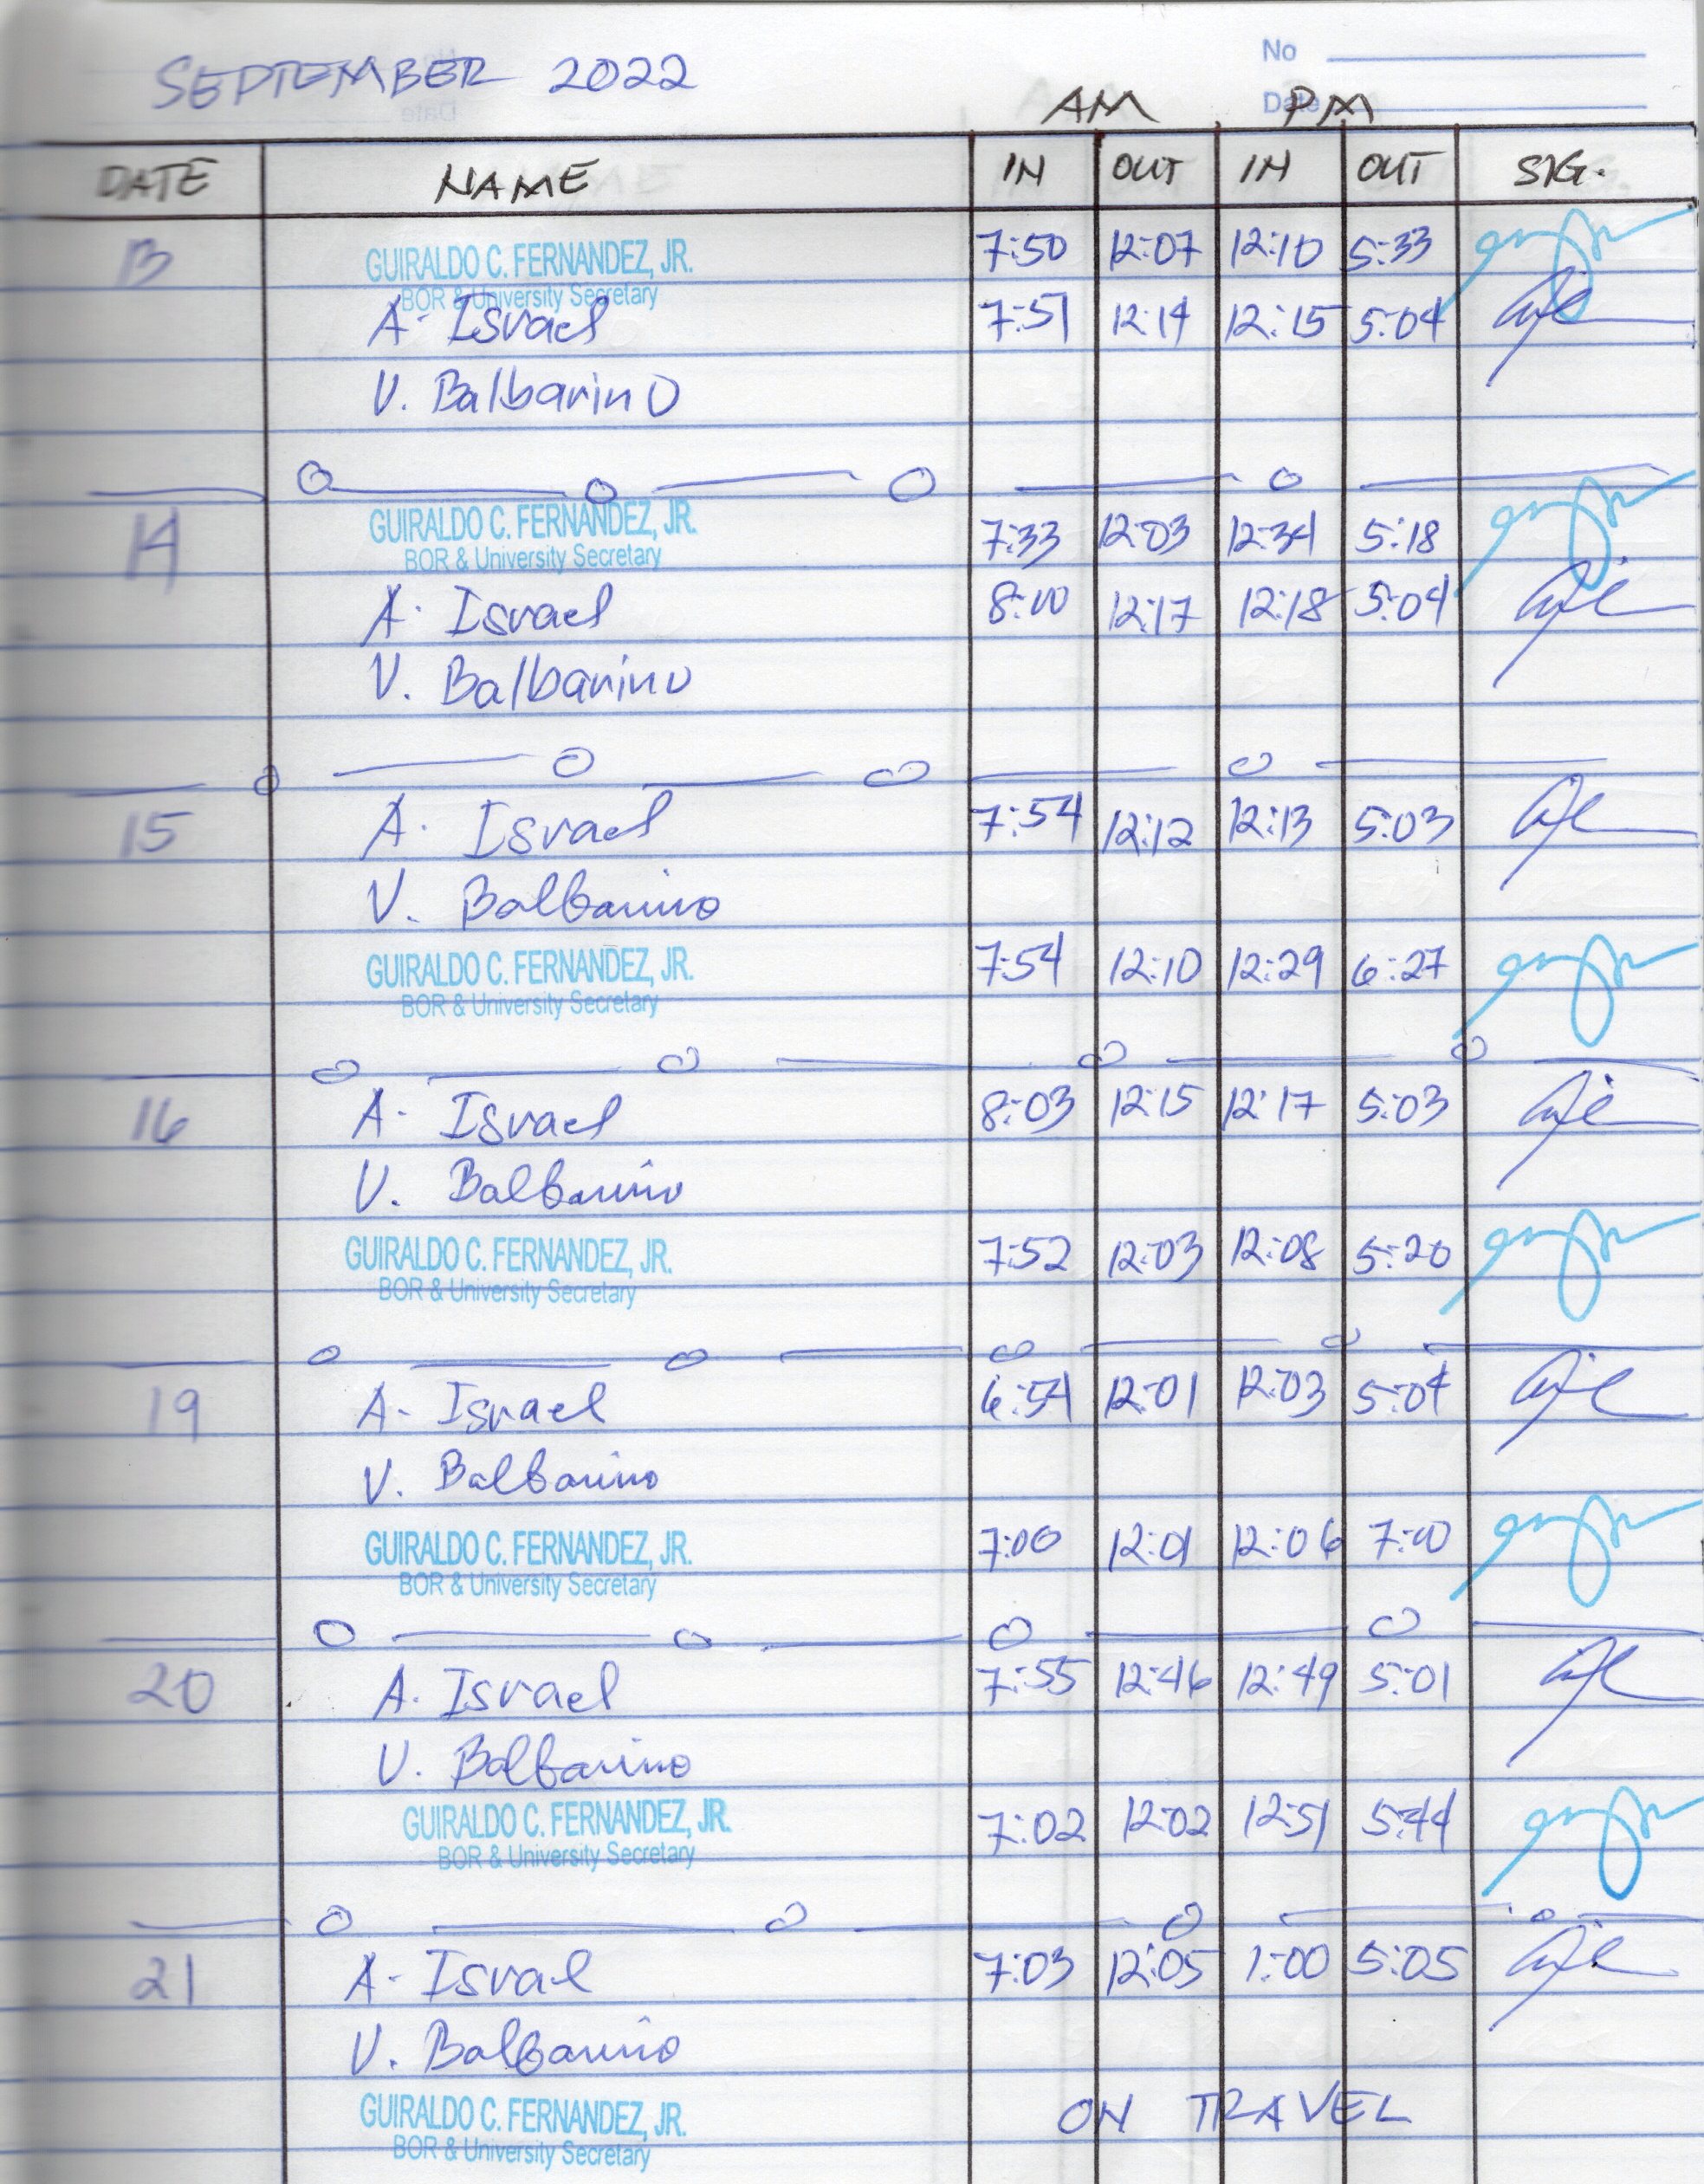 No
SEPTEMBER 2022
Date
AM PM
DATE NAME IN OUT IN OUT SIG.
13 GUIRALDO C. FERNANDEZ, JR. 7:50 12:07 12:10 5:33
BOR & University Secretary
A. Israel 7:51 12:14 12:15 5:04
V. Balbarino
14 GUIRALDO C. FERNANDEZ, JR. 7:33 12:03 12:34 5:18
BOR & University Secretary
A. Israel 8:00 12:17 12:18 5:04
V. Balbarino
15 A. Israel 7:54 12:12 12:13 5:03
V. Balbarino
GUIRALDO C. FERNANDEZ, JR. 7:54 12:10 12:29 6:27
BOR & University Secretary
16 A. Israel 8:03 12:15 12:17 5:03
V. Balbarino
GUIRALDO C. FERNANDEZ, JR. 7:52 12:03 12:08 5:20
BOR & University Secretary
19 A. Israel 6:54 12:01 12:03 5:04
V. Balbarino
GUIRALDO C. FERNANDEZ, JR. 7:00 12:01 12:06 7:00
BOR & University Secretary
20 A. Israel 7:55 12:46 12:49 5:01
V. Balbarino
GUIRALDO C. FERNANDEZ, JR. 7:02 12:02 12:51 5:44
BOR & University Secretary
21 A. Israel 7:03 12:05 1:00 5:05
V. Balbarino
GUIRALDO C. FERNANDEZ, JR. ON TRAVEL
BOR & University Secretary